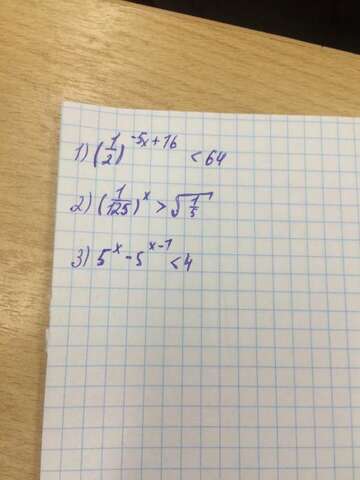 1) (1/2)^(-5x+16) < 64
2) (1/125)^x > √(1/5)
3) 5^x - 5^(x-1) < 4